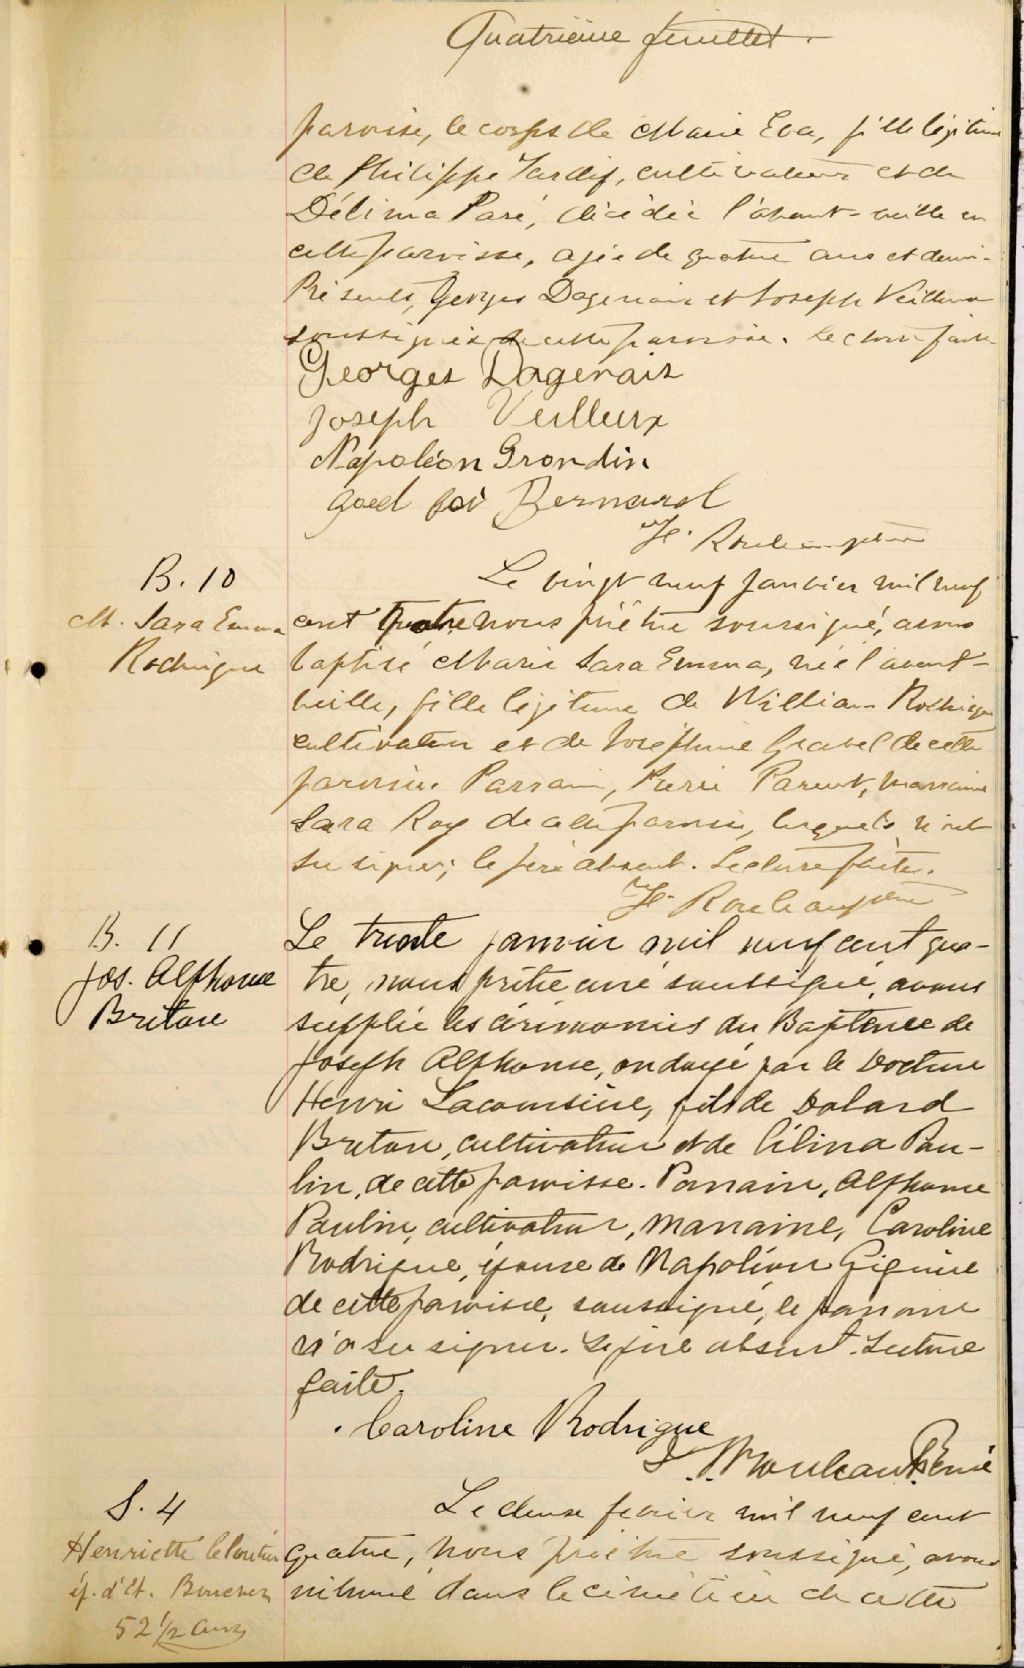 Quatrième feuillet.
paroisse, le corps de Marie Eva, fille légitime
de Philippe Tardif, cultivateur et de
Délima Paré, décédée l'avant-veille en
cette paroisse, agée de quatre ans et demi.
Présents, Georges Dagenais et Joseph Veilleux
soussignés de cette paroisse. Lecture faite
Georges Dagenais
Joseph Veilleux
Napoléon Grondin
Bernard
Rouleau ptre
B. 10
M. Sara Emma
Rodrigue
Le vingt neuf janvier mil neuf
cent quatre nous prêtre soussigné, avons
baptisé Marie Sara Emma, née l'avant-
veille, fille légitime de William Rodrigue
cultivateur et de Joséphine Gravel de cette
paroisse. Parrain, Pierre Parent, marraine
Sara Roy de cette paroisse, lesquels n'ont
su signer; le père absent. Lecture faite.
Rouleau ptre
B. 11
Jos. Alphonse
Breton
Le trente janvier mil neuf cent qua-
tre, nous prêtre curé soussigné, avons
supplié les cérémonies du Baptême de
Joseph Alphonse, ondoyé par le Docteur
Henri Lacoursière, fils de Dolard
Breton, cultivateur et de Célina Pou-
lin, de cette paroisse. Parrain, Alphonse
Poulin, cultivateur, marraine, Caroline
Rodrigue, épouse de Napoléon Giguère
de cette paroisse, soussigné, le parrain
n'a su signer. Le père absent. Lecture
faite.
Caroline Rodrigue
Rouleau Ptre Curé
S. 4
Henriette
ép. d'Et. Boucher
52 1/2 ans
Le deuxe fevrier mil neuf cent
quatre, nous prêtre soussigné, avons
inhumé dans le cimetière de cette